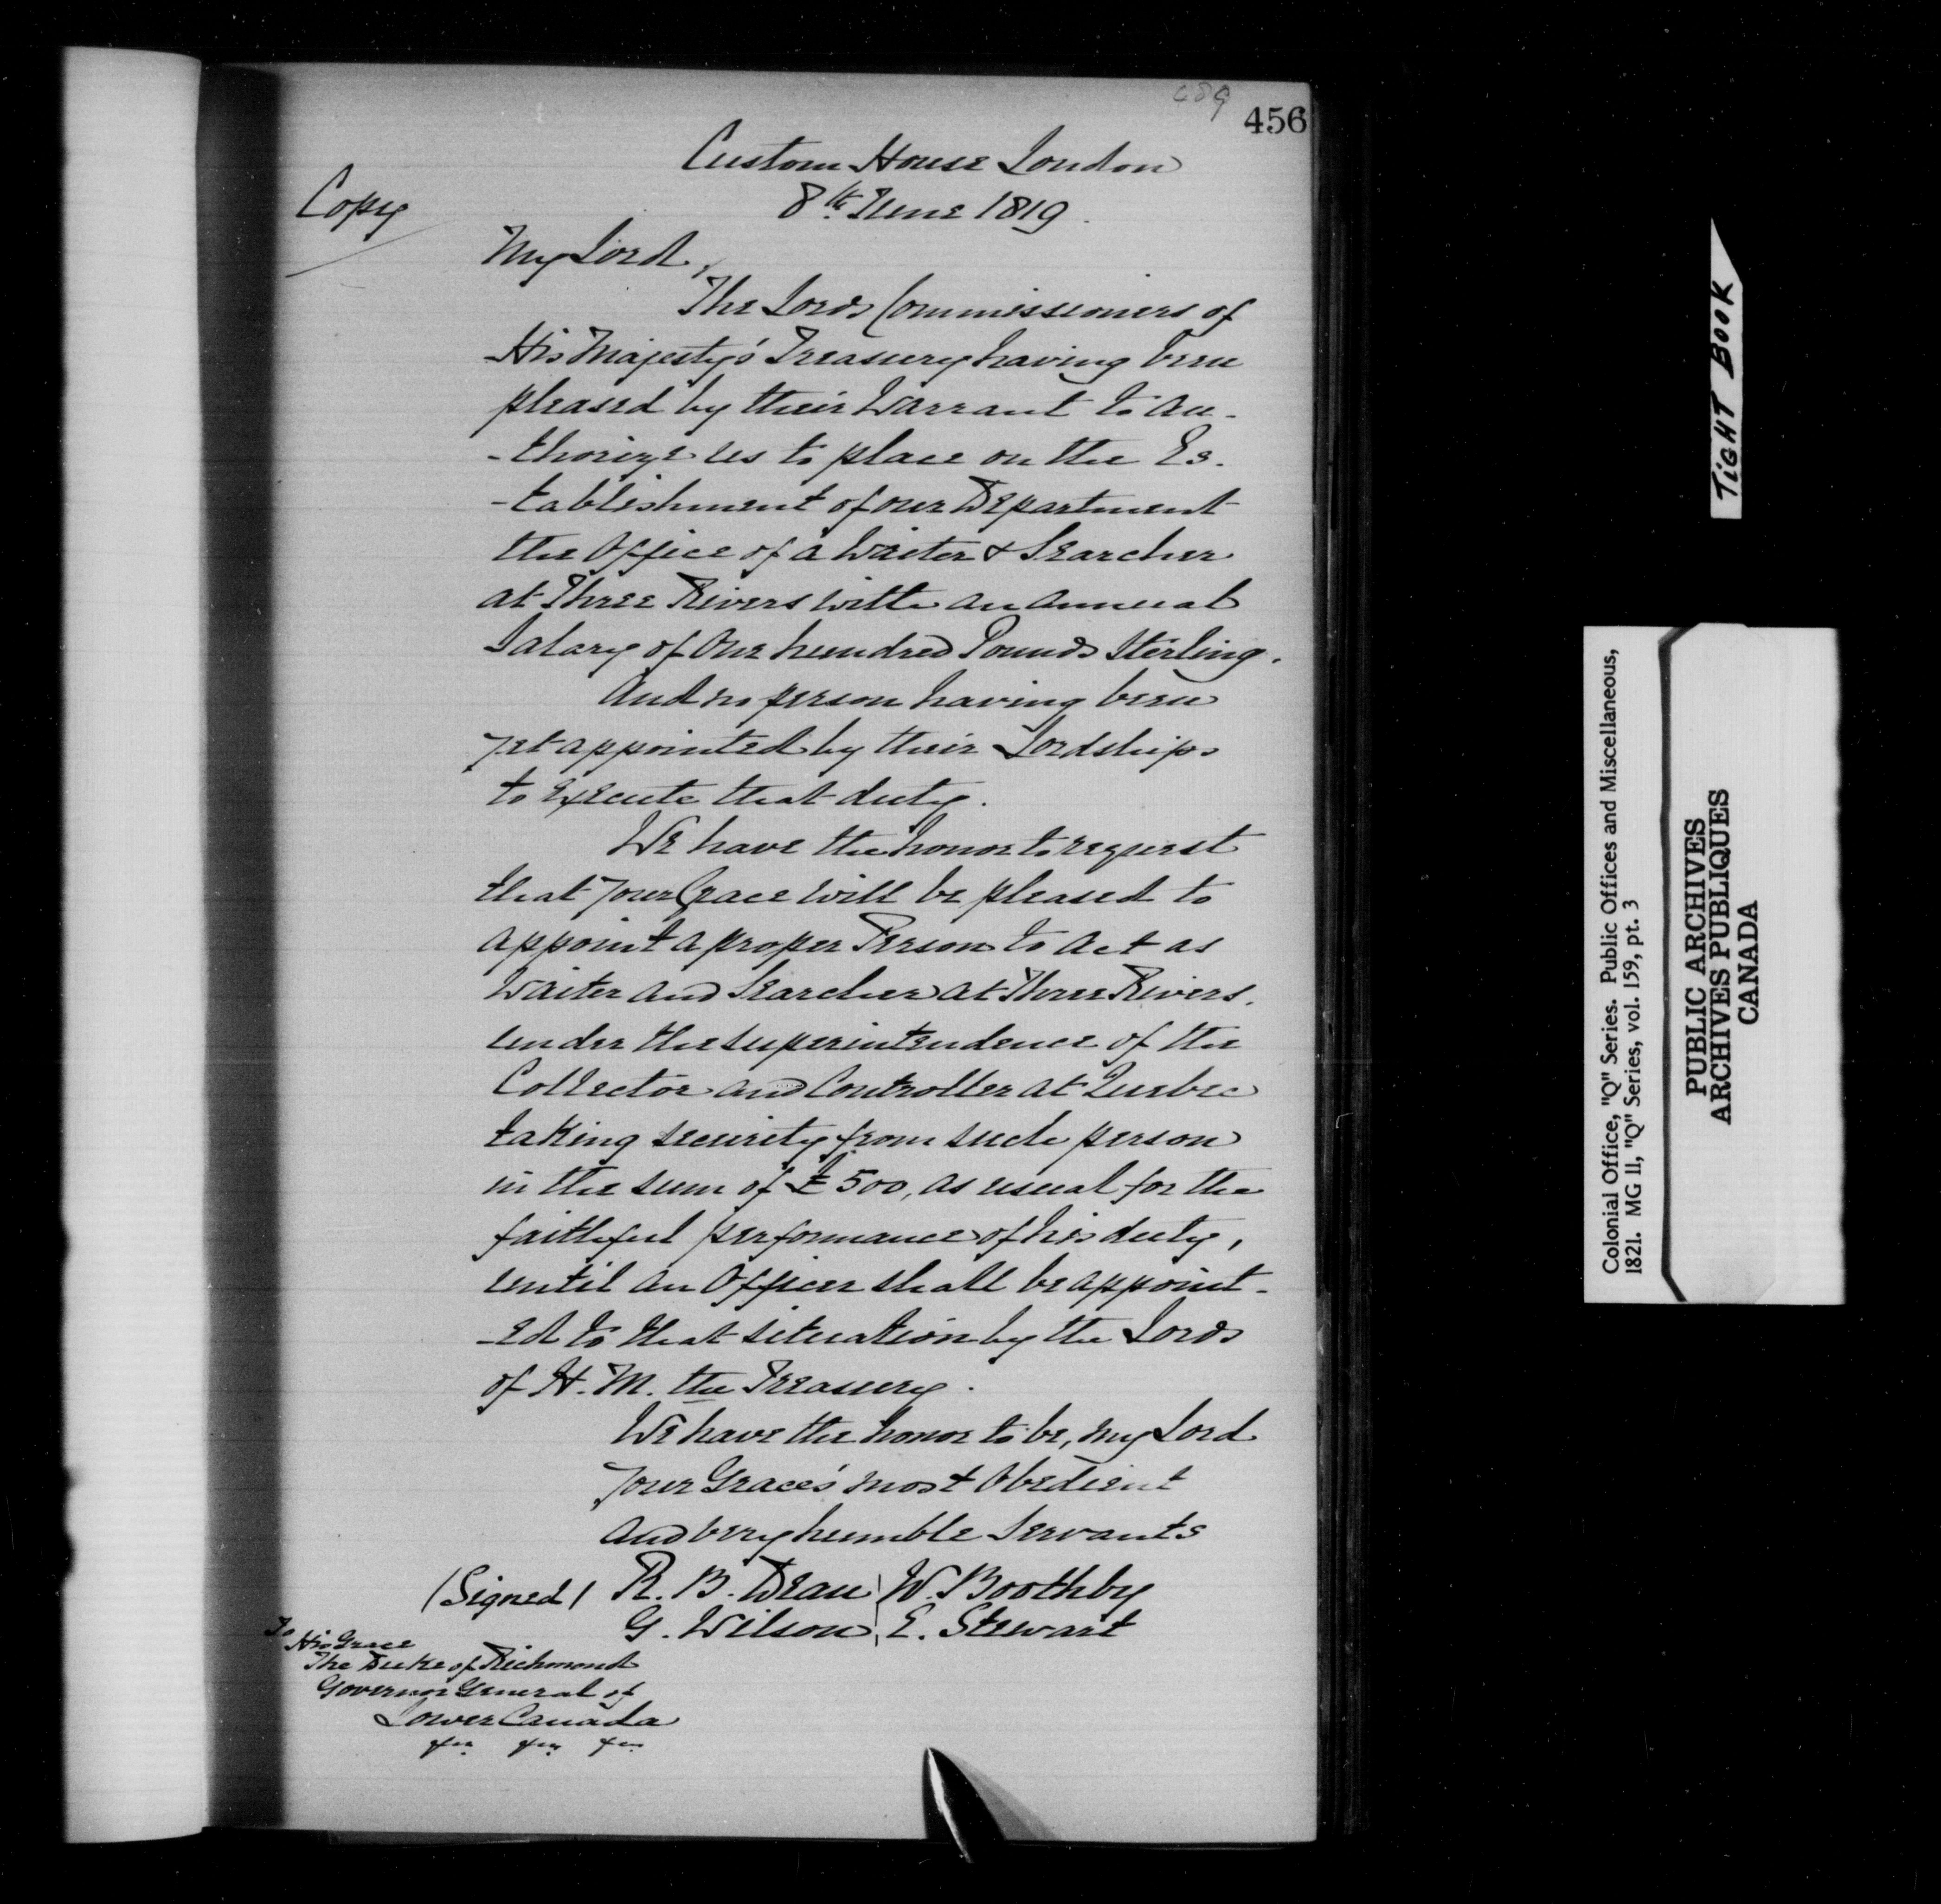 489
456
Custom House London
8th June 1819.
Copy
My Lord,
The Lords Commissioners of
His Majesty's Treasury having been
pleased by their Warrant to au-
-thorize us to place on the Es-
-tablishment of our Department
the Office of a Waiter & Searcher
at Three Rivers with an annual
Salary of One hundred Pounds Sterling.
And no person having been
yet appointed by their Lordships
to execute that duty.
We have the honor to request
that Your Grace will be pleased to
appoint a proper Person to act as
Waiter and Searcher at Three Rivers.
under the superintendence of the
Collector and Controller at Quebec
taking security from such person
in the sum of £500, as usual for the
faithful performance of his duty,
until an Officer shall be appoint-
-ed to that situation by the Lords
of H. M. the Treasury.
We have the honor to be, my Lord
Your Grace's most Obedient
and very humble Servants
(Signed) R. B. Dean W. Boothby
G. Wilson, E. Stewart
To
His Grace
The Duke of Richmond
Governor General of
Lower Canada
&c. &c. &c.
TIGHT BOOK
Colonial Office, "Q" Series. Public Offices and Miscellaneous,
1821. MG 11, "Q" Series, vol. 159, pt. 3
PUBLIC ARCHIVES
ARCHIVES PUBLIQUES
CANADA